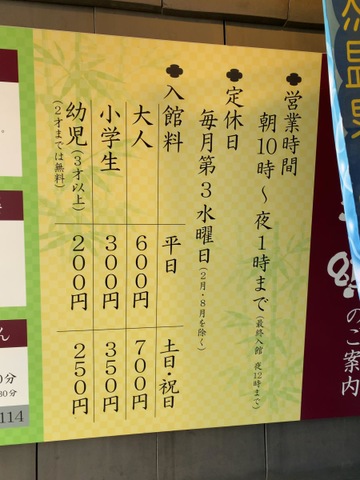 のご案内
営業時間
朝10時～夜1時まで(最終入館 夜12時まで)
定休日
毎月第3水曜日(2月・8月を除く)
入館料 平日 土日・祝日
大人 600円 700円
小学生 300円 350円
幼児(3才以上) 200円 250円
(2才までは無料)
ん
0分
30分
114